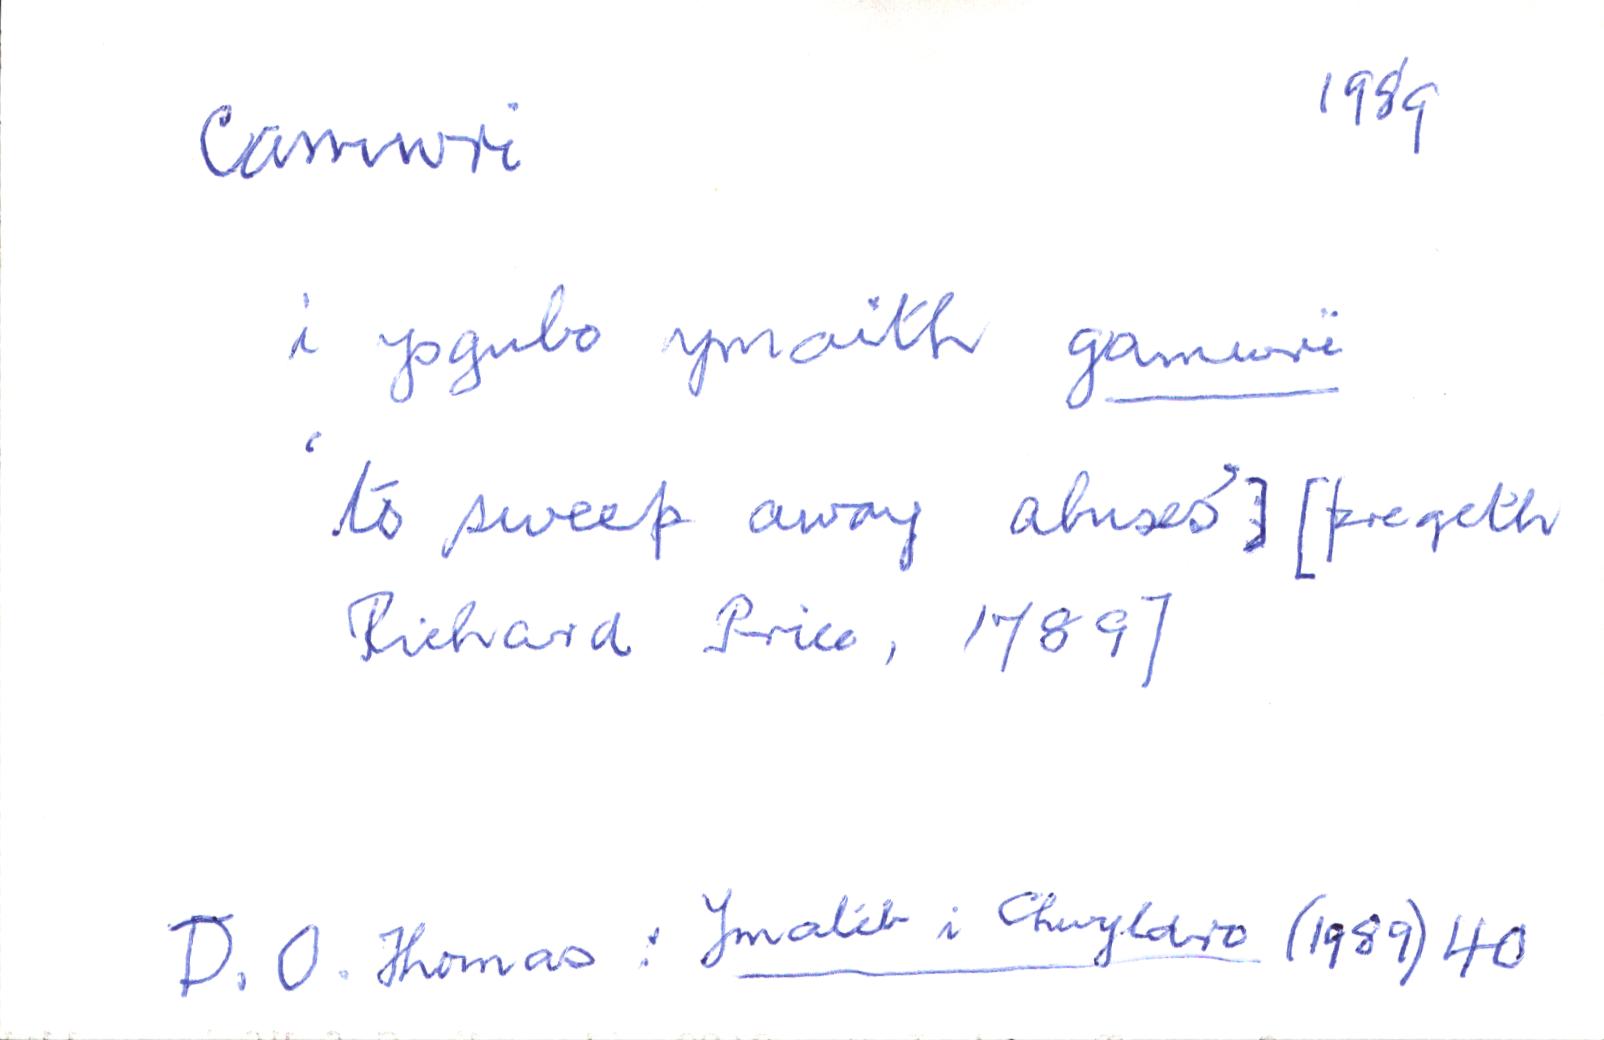 Camwri 1989
i ysgubo ymaith gamwri
‘to sweep away abuses’] [pregeth
Richard Price, 1789]
D. O. Thomas : Ymateb i Chwyldro (1989) 40